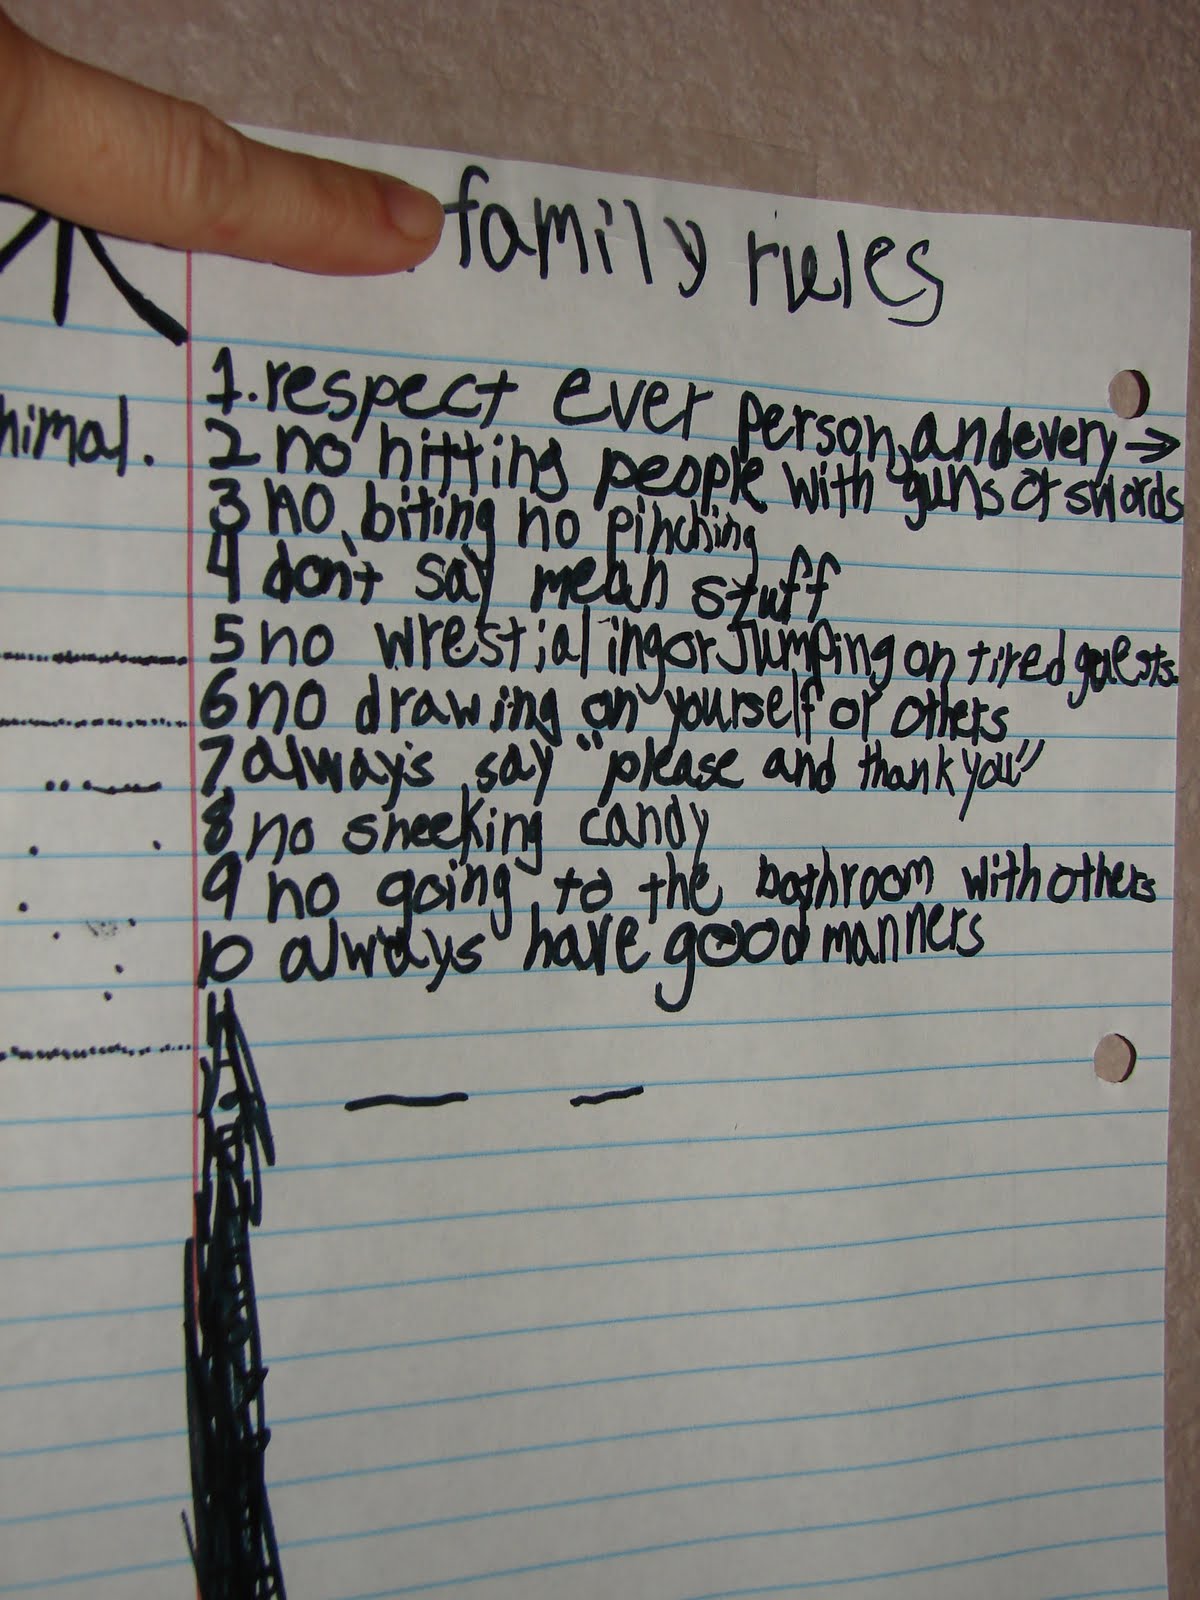 family rules
1. respect ever person, and every →
himal.
2 no hitting people with guns or swords
3 no biting no pinching
4 don't say mean stuff
5 no wrestialing or Jumping on tired guests.
6 no drawing on yourself or others
7 always say "please and thank you"
8 no sneeking candy
9 no going to the bathroom with others
10 always have good manners